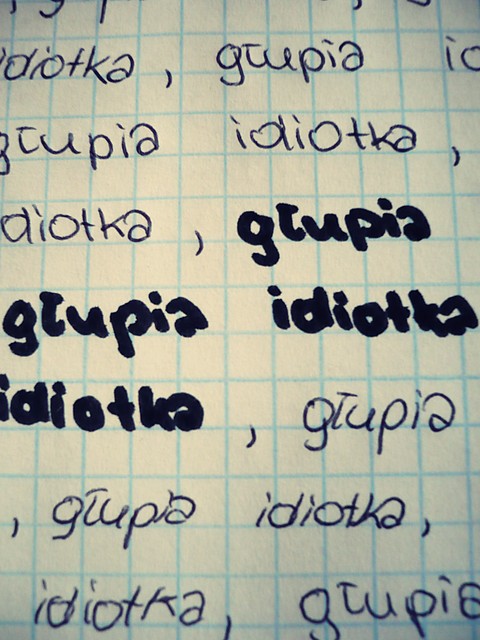 idiotka, głupia
głupia idiotka,
diotka, głupia
głupia idiotka
idiotka, głupia
, głupia idiotka,
idiotka, głupia